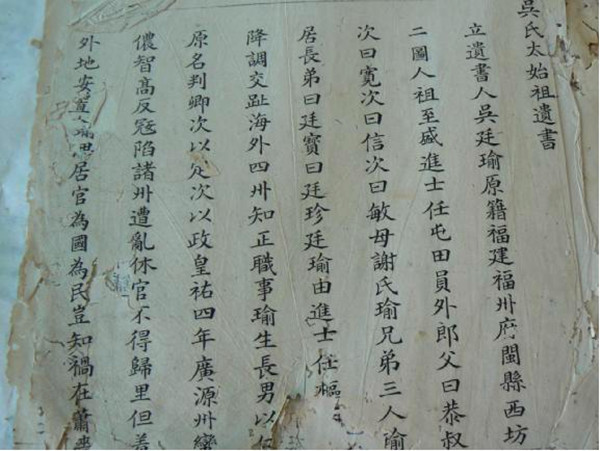 吳氏太始祖遺書
立遺書人吳廷瑜原籍福建福州府閩縣西坊
二圖人祖至盛進士任屯田員外郎父曰恭叔
次曰寬次曰信次曰敏母謝氏瑜兄弟三人瑜
居長弟曰廷寶曰廷珍廷瑜由進士任樞
降調交趾海外四州知正職事瑜生長男以
原名判卿次以定次以政皇祐四年廣源州蠻
儂智高反冦陷諸州遭亂休官不得歸里但善
外地安置瑜思居官為國為民豈知禍在蕭